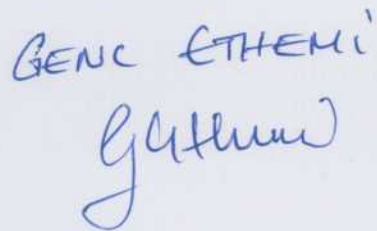 GENC ETHEMi